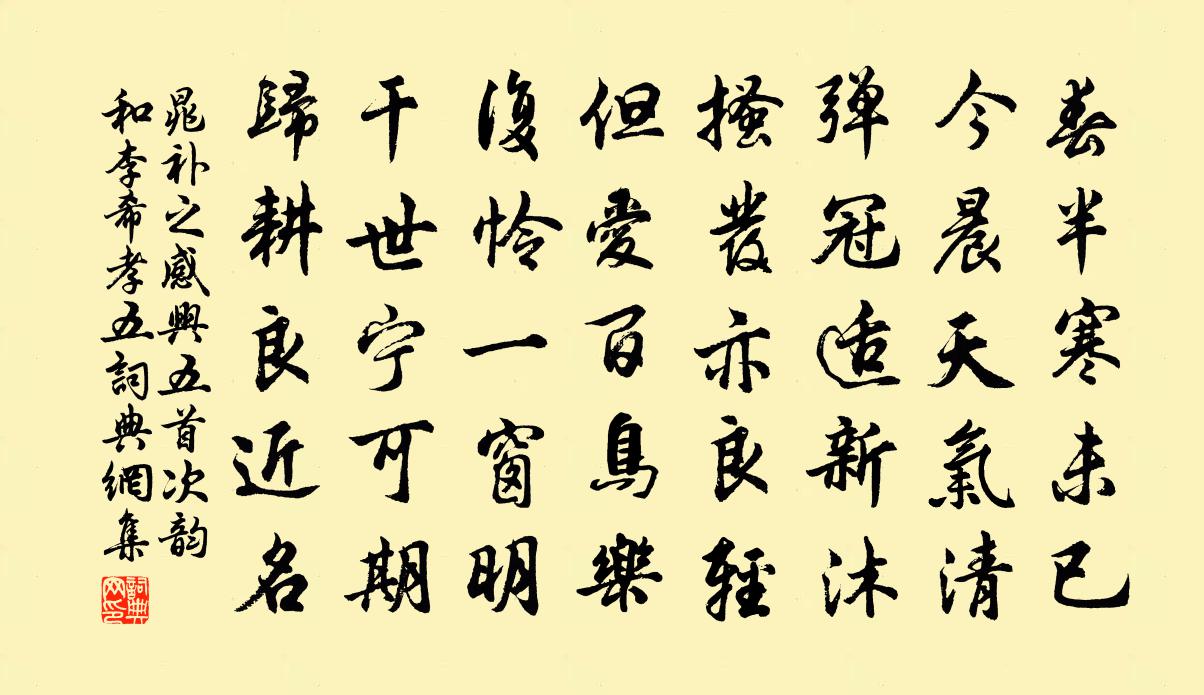 春半寒未已
今晨天氣清
弹冠适新沐
搔發亦良輕
但愛百鳥樂
復憐一窗明
干世宁可期
歸耕良近名
晁补之感興五首次韵
和李希孝五詞典網集
詞典网印